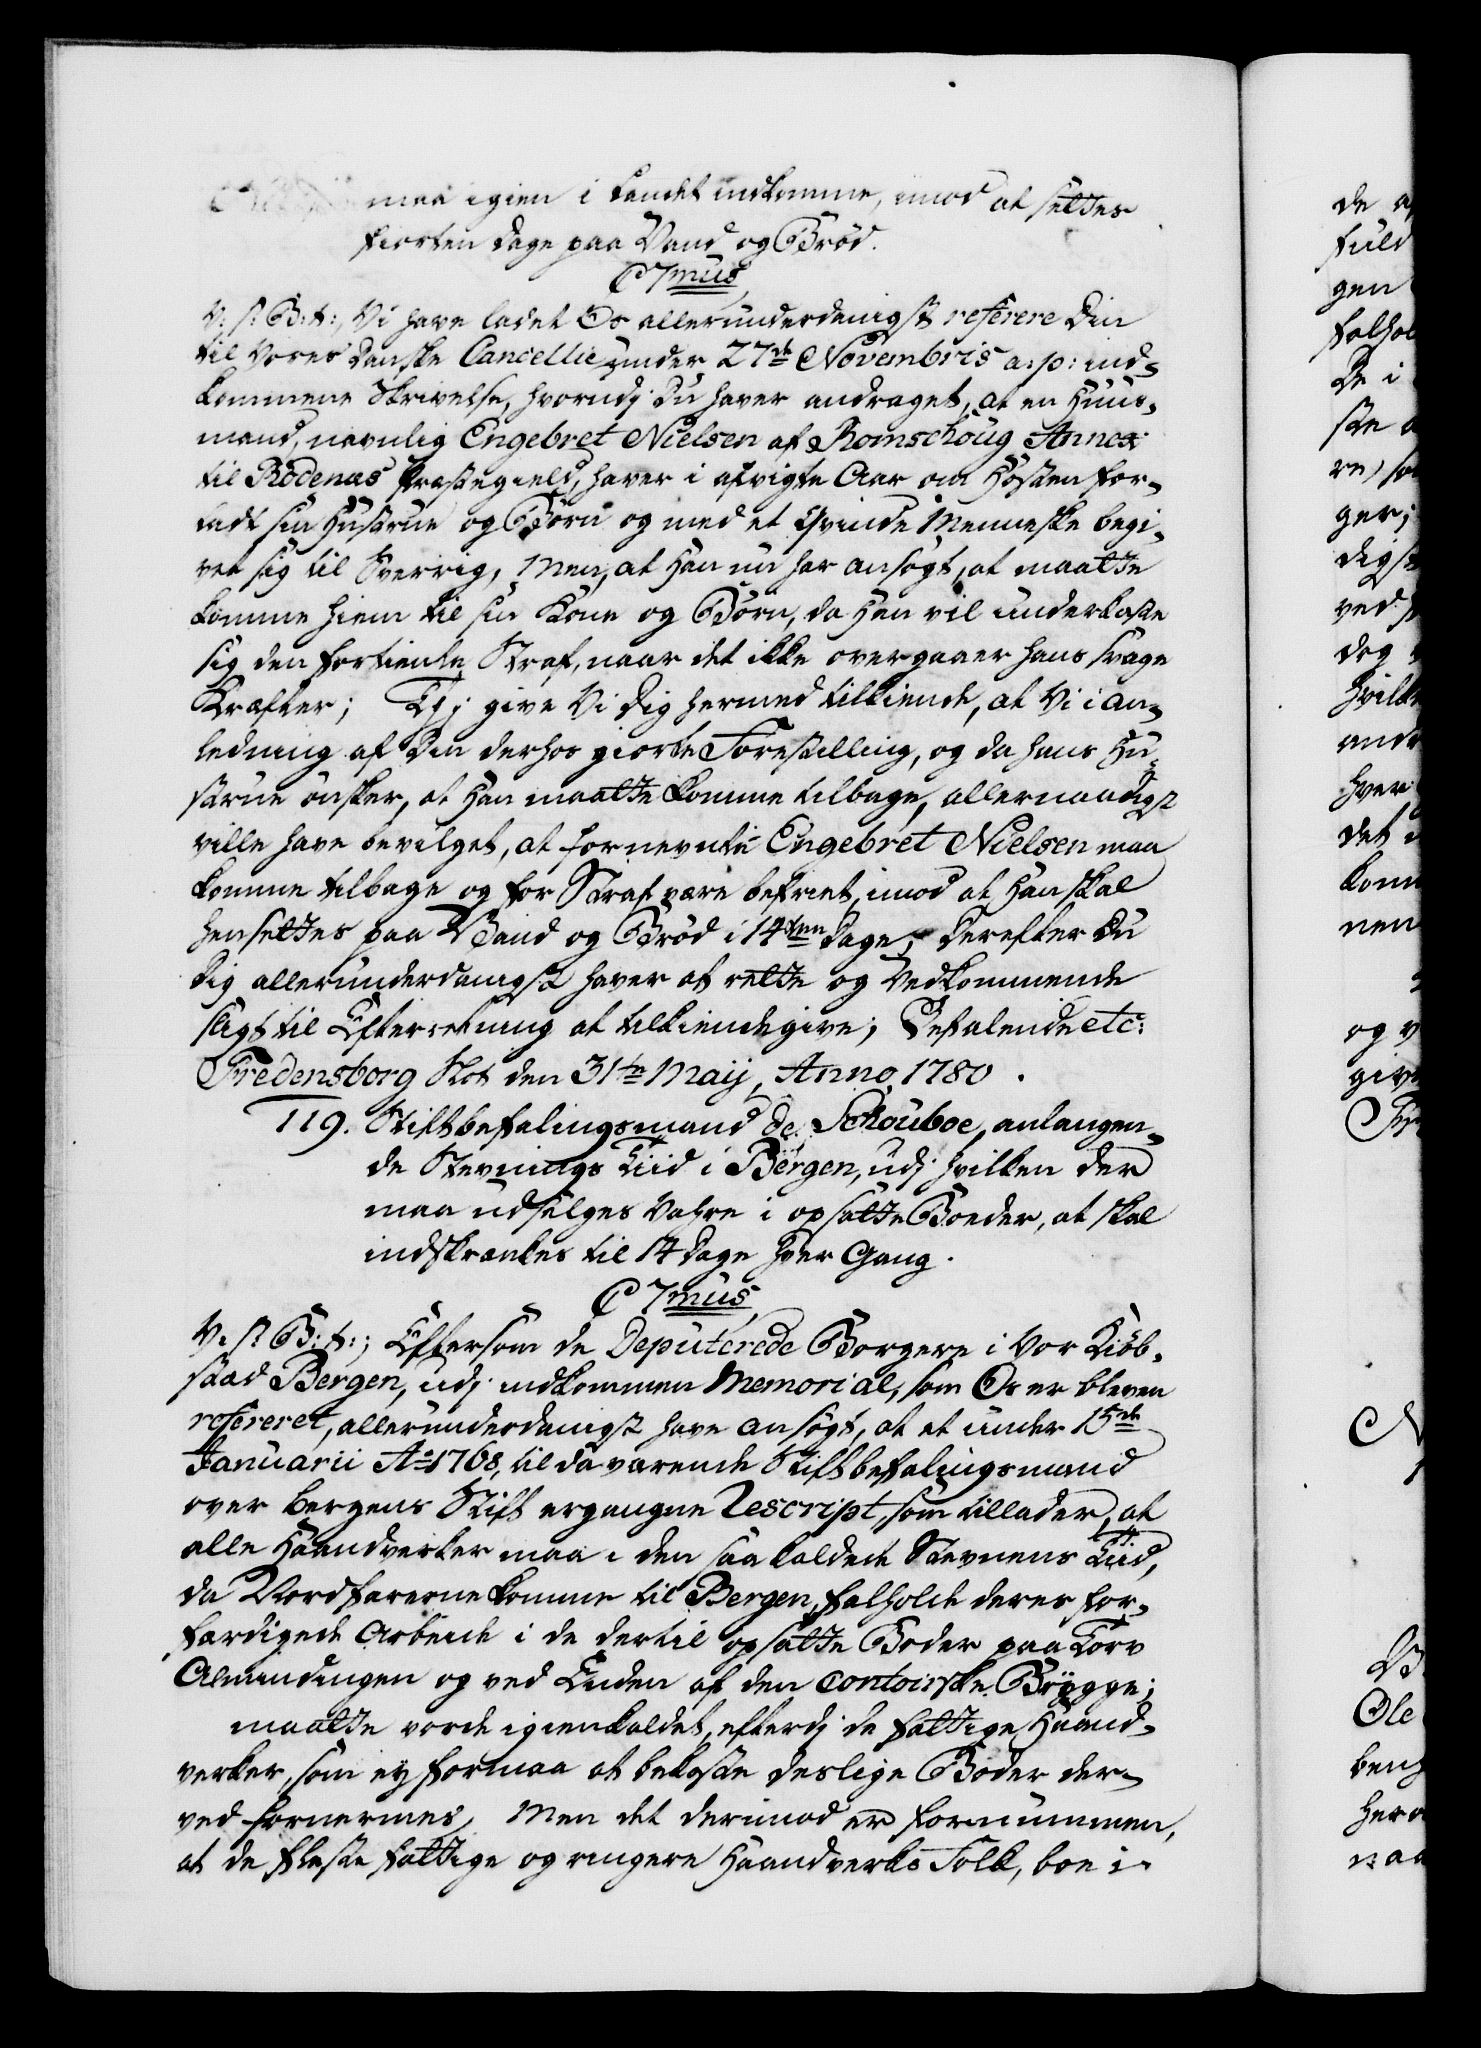 maa igien i Landet indkomme, imod at settes
fiorten Dage paa Vand og Brød.
C 7mus
V. S. G: t:, Vi have ladet Os allerunderdanigst referere Din
til Vores Danske Cancellie under 27de Novembris a: p: ind-
kommene Skrivelse, hvorudj Du haver andraget, at en Huus-
mand, navnlig Engebret Nielsen af Romschoug Annex
til Rødenæs Præstegield, haver i afvigte Aar om Høsten for-
ladt sin Hustrue og Børn og med et Qvinde Menneske begi-
vet sig til Sverrig, Men, at Han nu har ansøgt, at maatte
komme hiem til sin Kone og Børn, da Han vil underkaste
sig den fortiente Straf, naar det ikke overgaaer hans svage
Kræfter; Thj give Vi Dig hermed tilkiende, at Vi i An-
ledning af Din derhos giorte Forestilling, og da hans Hu-
strue ønsker, at Han maatte komme tilbage, allernaadigst
ville have bevilget, at fornevnte Engebret Nielsen maa
komme tilbage og for Straf være befriet, imod at Han skal
hensettes paa Vand og Brød i 14ten Dage, Derefter Du
Dig allerunderdanigst haver at rette og Vedkommende
sligt til Efterretning at tilkiendegive; Befalende etc:
Fredensborg Slot den 31te Maij, Anno 1780.
119. Stiftbefalingsmand de Schouboe, anlangen-
de Stevnings Tiid i Bergen, udj hvilken der
maa udsælges Vahre i opsatte Boeder, at skal
indskrænkes til 14 Dage hver Gang.
C 7mus
V. S. G: t:; Eftersom de Deputerede Borgere i Vor Kiøb-
stad Bergen, udj indkommen Memorial, som Os er bleven
refereret, allerunderdanigst have ansøgt, at et under 15de
Januarii Ao 1768, til daværende Stiftbefalingsmand
over Bergens Stift ergangne Rescript, som tillader, at
alle Haandverker maa i den saa kaldede Stevnens Tiid,
da Nordfarerne komme til Bergen, falholde deres for-
færdigede Arbeide i de dertil opsatte Boder paa Torv
Almindingen og ved Enden af den Contoirske Brygge;
maatte vorde igienkaldet, efterdj de fattige Haand-
verker, som ey formaa at bekoste deslige Boder der-
ved fornermes, Men det derimod er fornummen,
at de fleste fattige og ringere Haandverks Folk, boe i